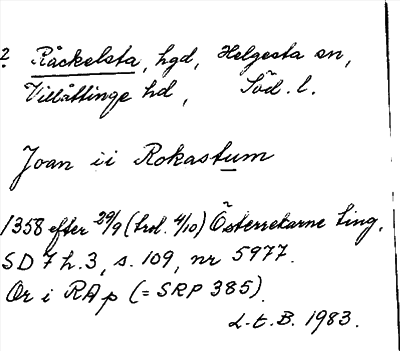 2 Råckelsta, hgd, Helgesta sn,
Villåttinge hd, Söd. l.
Joan ii Rokastum
1358 efter 29/9 (trol. 4/10) Österrekarne ting.
SD 7 h.3, s. 109, nr 5977.
Or i RAp (= SRP 385).
L.t.B. 1983.